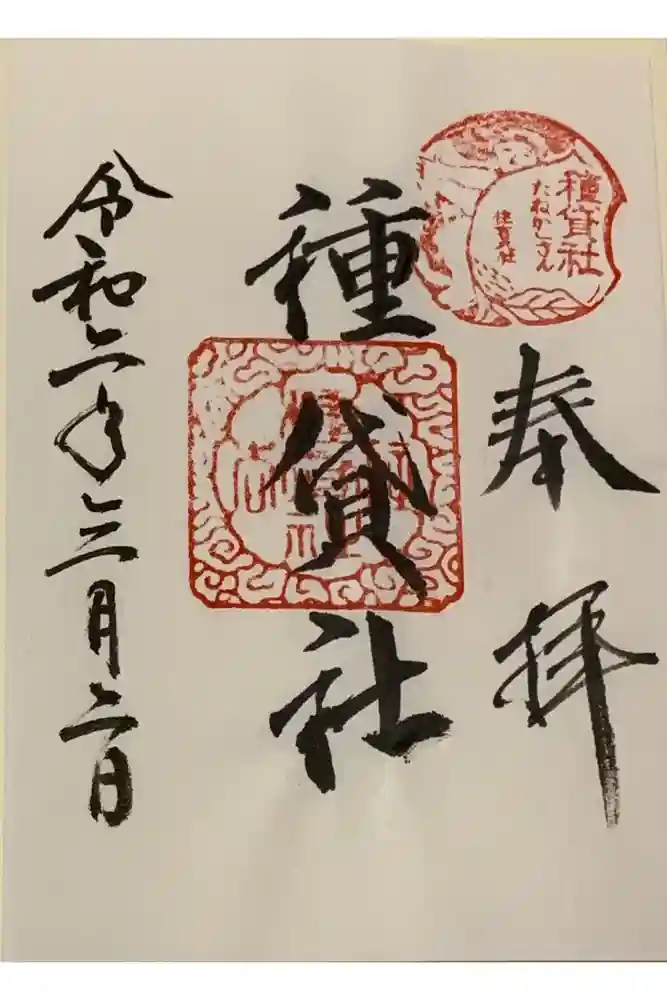 種貸社
たねかしさん
奉拝
種貸社
令和二年三月二日